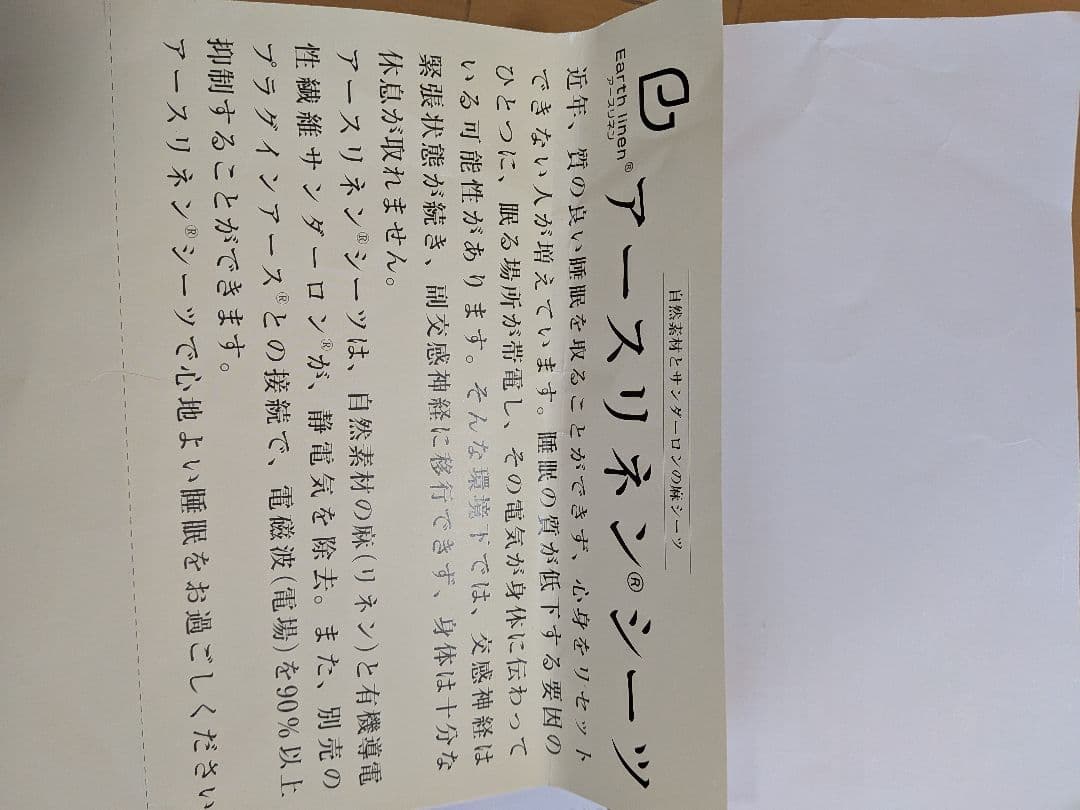 Earth linen®
アースリネン
自然素材とサンダーロンの麻シーツ
アースリネン®シーツ
近年、質の良い睡眠を取ることができず、心身をリセット
できない人が増えています。睡眠の質が低下する要因の
ひとつに、眠る場所が帯電し、その電気が身体に伝わって
いる可能性があります。そんな環境下では、交感神経は
緊張状態が続き、副交感神経に移行できず、身体は十分な
休息が取れません。
アースリネン®シーツは、自然素材の麻(リネン)と有機導電
性繊維サンダーロン®が、静電気を除去。また、別売の
プラグインアース®との接続で、電磁波(電場)を90%以上
抑制することができます。
アースリネン®シーツで心地よい睡眠をお過ごしください